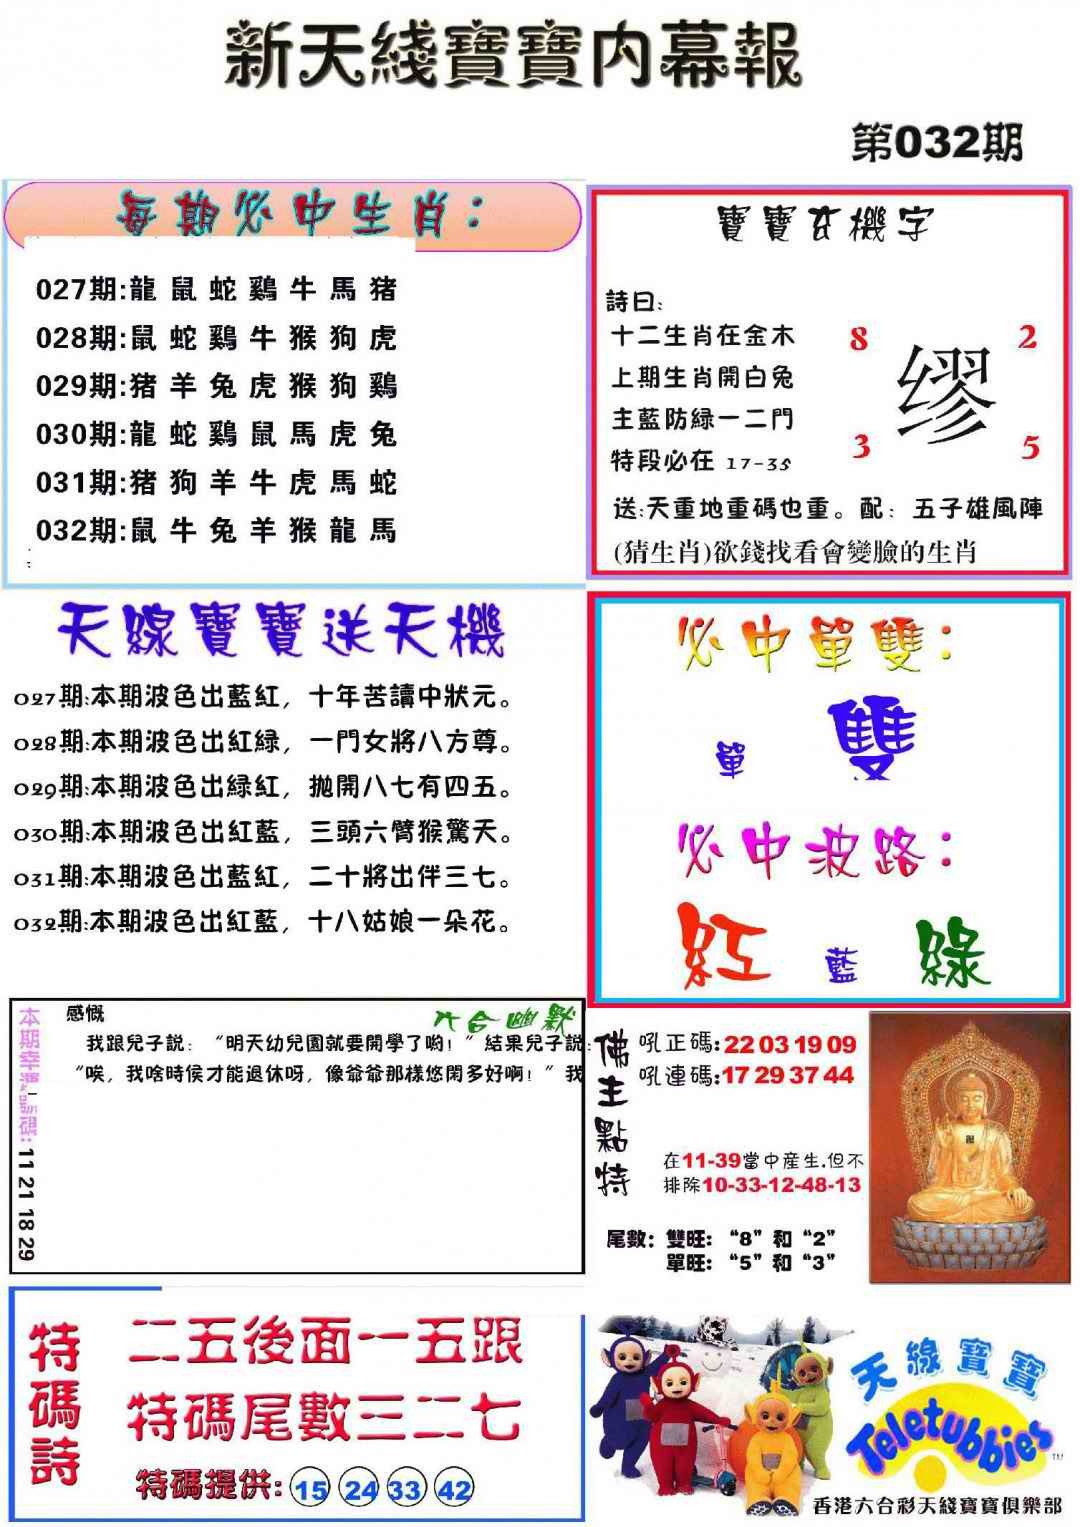 新天綫寶寶内幕報
第032期
每期必中生肖：
027期:龍 鼠 蛇 鷄 牛 馬 猪
028期:鼠 蛇 鷄 牛 猴 狗 虎
029期:猪 羊 兔 虎 猴 狗 鷄
030期:龍 蛇 鷄 鼠 馬 虎 兔
031期:猪 狗 羊 牛 虎 馬 蛇
032期:鼠 牛 兔 羊 猴 龍 馬
寶寶玄機字
詩曰:
十二生肖在金木
上期生肖開白兔
主藍防緑一二門
特段必在 17-35
8 2
缪
3 5
送:天重地重碼也重。配：五子雄風陣
(猜生肖)欲錢找看會變臉的生肖
天線寶寶送天機
027期:本期波色出藍紅，十年苦讀中狀元。
028期:本期波色出紅緑，一門女將八方尊。
029期:本期波色出緑紅，抛開八七有四五。
030期:本期波色出紅藍，三頭六臂猴驚天。
031期:本期波色出藍紅，二十將出伴三七。
032期:本期波色出紅藍，十八姑娘一朵花。
必中單雙：
單 雙
必中波路：
紅 藍 綠
本期幸運號碼: 11 21 18 29
六合幽默
感慨
我跟兒子説：“明天幼兒園就要開學了喲！”結果兒子説:
“唉，我啥時侯才能退休呀，像爺爺那樣悠閑多好啊！”我
佛主點特
吼正碼:22 03 19 09
吼連碼:17 29 37 44
在11-39當中産生.但不
排除10-33-12-48-13
尾數：雙旺：“8”和“2”
單旺：“5”和“3”
特碼詩
二五後面一五跟
特碼尾數三二七
特碼提供: 15 24 33 42
天線寶寶
Teletubbies
TM
香港六合彩天綫寶寶俱樂部